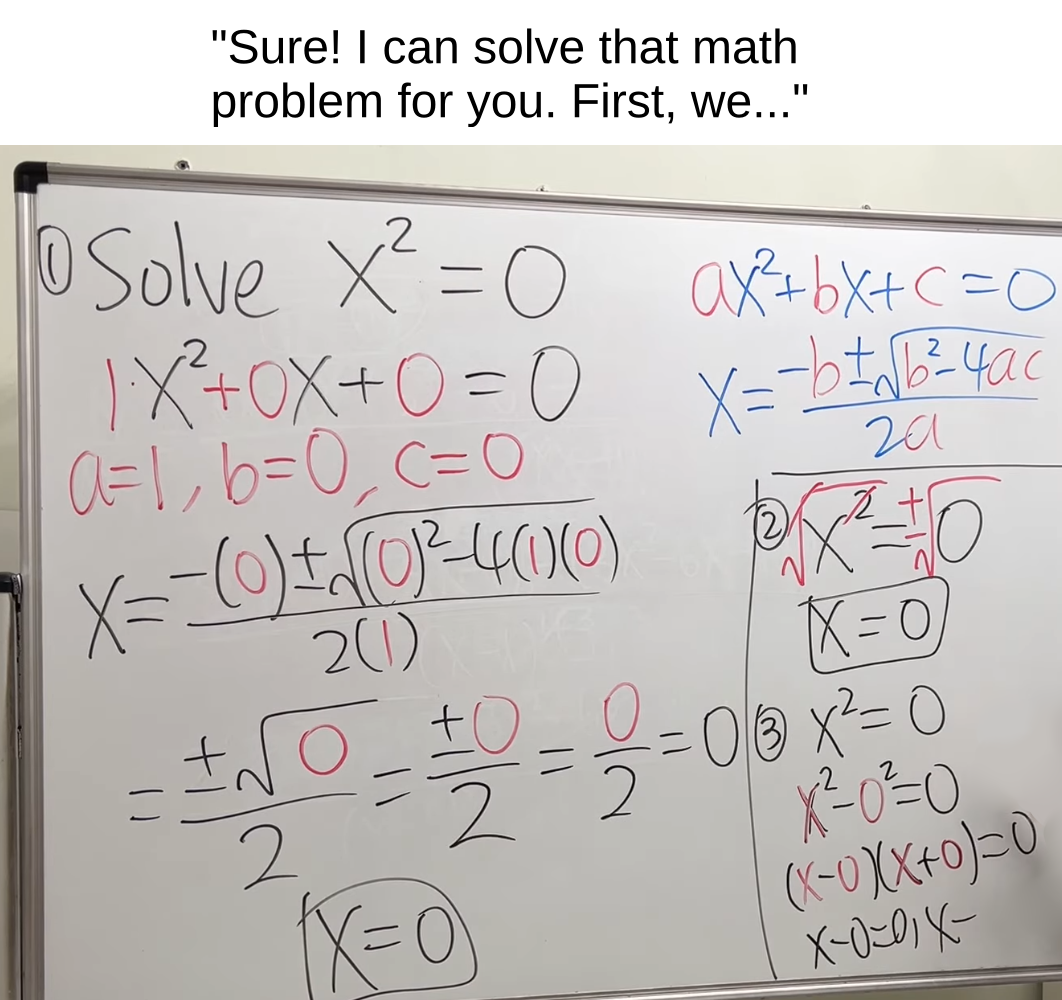 "Sure! I can solve that math
problem for you. First, we..."
① Solve x² = 0
1·x²+0x+0=0
a=1, b=0, c=0
x= -(0)±√(0)²-4(1)(0) / 2(1)
= ±√0 / 2 = ±0 / 2 = 0 / 2 = 0
x=0
ax²+bx+c=0
x= -b±√b²-4ac / 2a
② √x²=±√0
x=0
③ x²=0
x²-0²=0
(x-0)(x+0)=0
x-0=0, x-